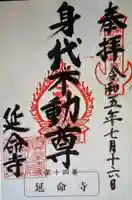 奉拝
令和五年七月十六日
身代不動尊
延命寺
延命寺